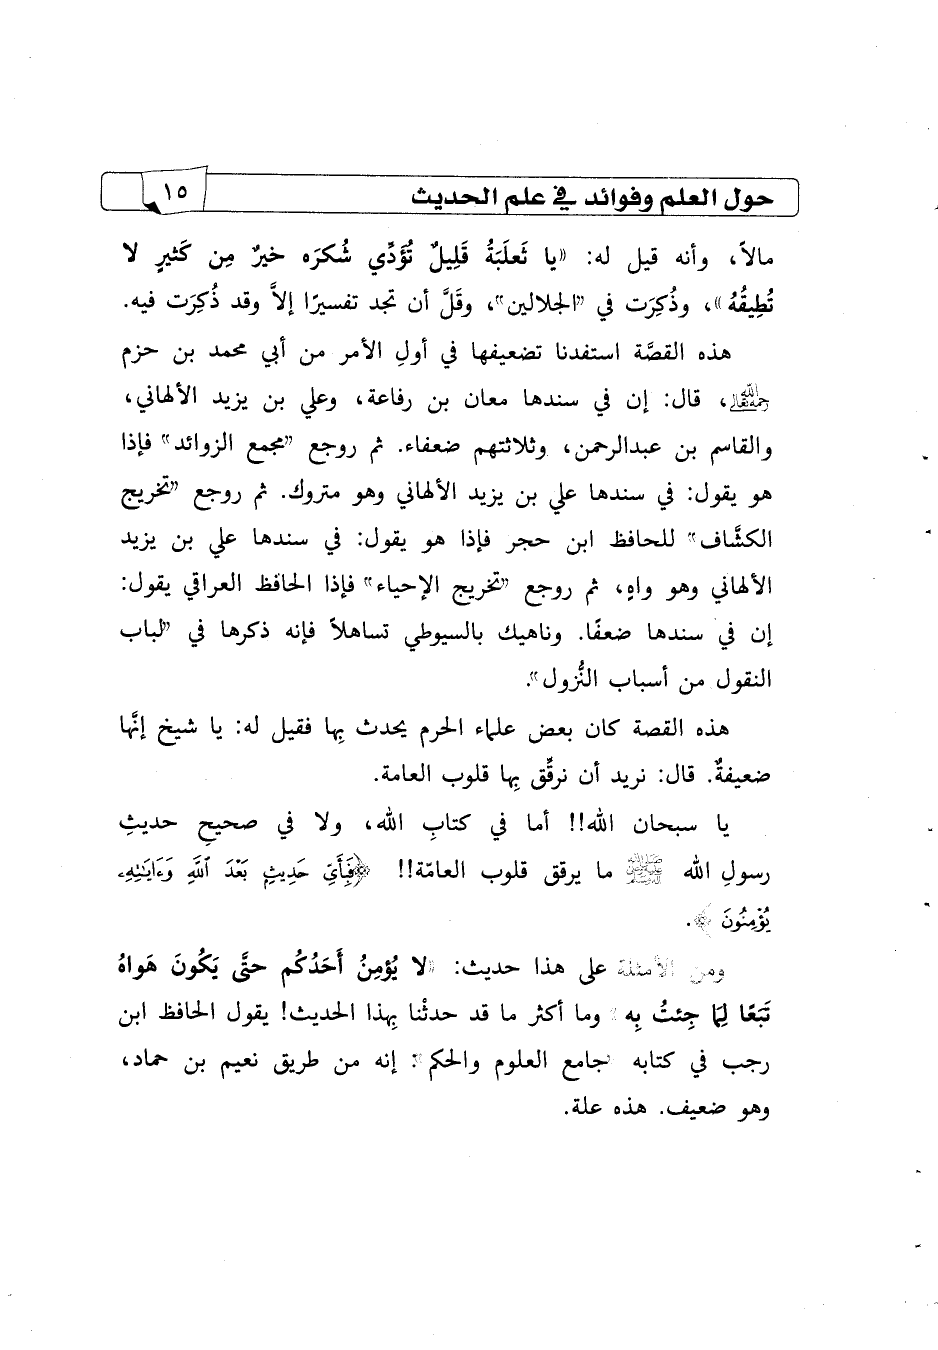 حول العلم وفوائد في علم الحديث ١٥
مالاً، وأنه قيل له: «يا ثَعلَبَةُ قَلِيلٌ تُؤَدِّي شُكرَه خيرٌ مِن كَثيرٍ لا
تُطِيقُهُ»، وذُكِرَت في "الجلالين"، وقَلَّ أن تجد تفسيرًا إلاَّ وقد ذُكِرَت فيه.
هذه القصَّة استفدنا تضعيفها في أولِ الأمر من أبي محمد بن حزم
رحمه الله تعالى، قال: إن في سندها معان بن رفاعة، وعلي بن يزيد الألهاني،
والقاسم بن عبدالرحمن، وثلاثتهم ضعفاء. ثم روجع "مجمع الزوائد" فإذا
هو يقول: في سندها علي بن يزيد الألهاني وهو متروك. ثم روجع "تخريج
الكشَّاف" للحافظ ابن حجر فإذا هو يقول: في سندها علي بن يزيد
الألهاني وهو واهٍ، ثم روجع "تخريج الإحياء" فإذا الحافظ العراقي يقول:
إن في سندها ضعفًا. وناهيك بالسيوطي تساهلاً فإنه ذكرها في "لباب
النقول من أسباب النُّزول".
هذه القصة كان بعض علماء الحرم يحدث بِها فقيل له: يا شيخ إنَّها
ضعيفةٌ. قال: نريد أن نرقِّق بِها قلوب العامة.
يا سبحان الله!! أما في كتابِ الله، ولا في صحيحِ حديثِ
رسولِ الله ﷺ ما يرقق قلوب العامّة!! ﴿فَبِأَيِّ حَدِيثٍ بَعْدَ ٱللَّهِ وَءَايَـٰتِهِۦ
يُؤْمِنُونَ﴾.
ومن الأمثلة على هذا حديث: «لا يُؤمِنُ أَحَدُكُم حتَّى يَكُونَ هَواهُ
تَبَعًا لِمَا جِئتُ بِه» وما أكثر ما قد حدثْنا بِهذا الحديث! يقول الحافظ ابن
رجب في كتابه "جامع العلوم والحكم": إنه من طريق نعيم بن حماد،
وهو ضعيف. هذه علة.